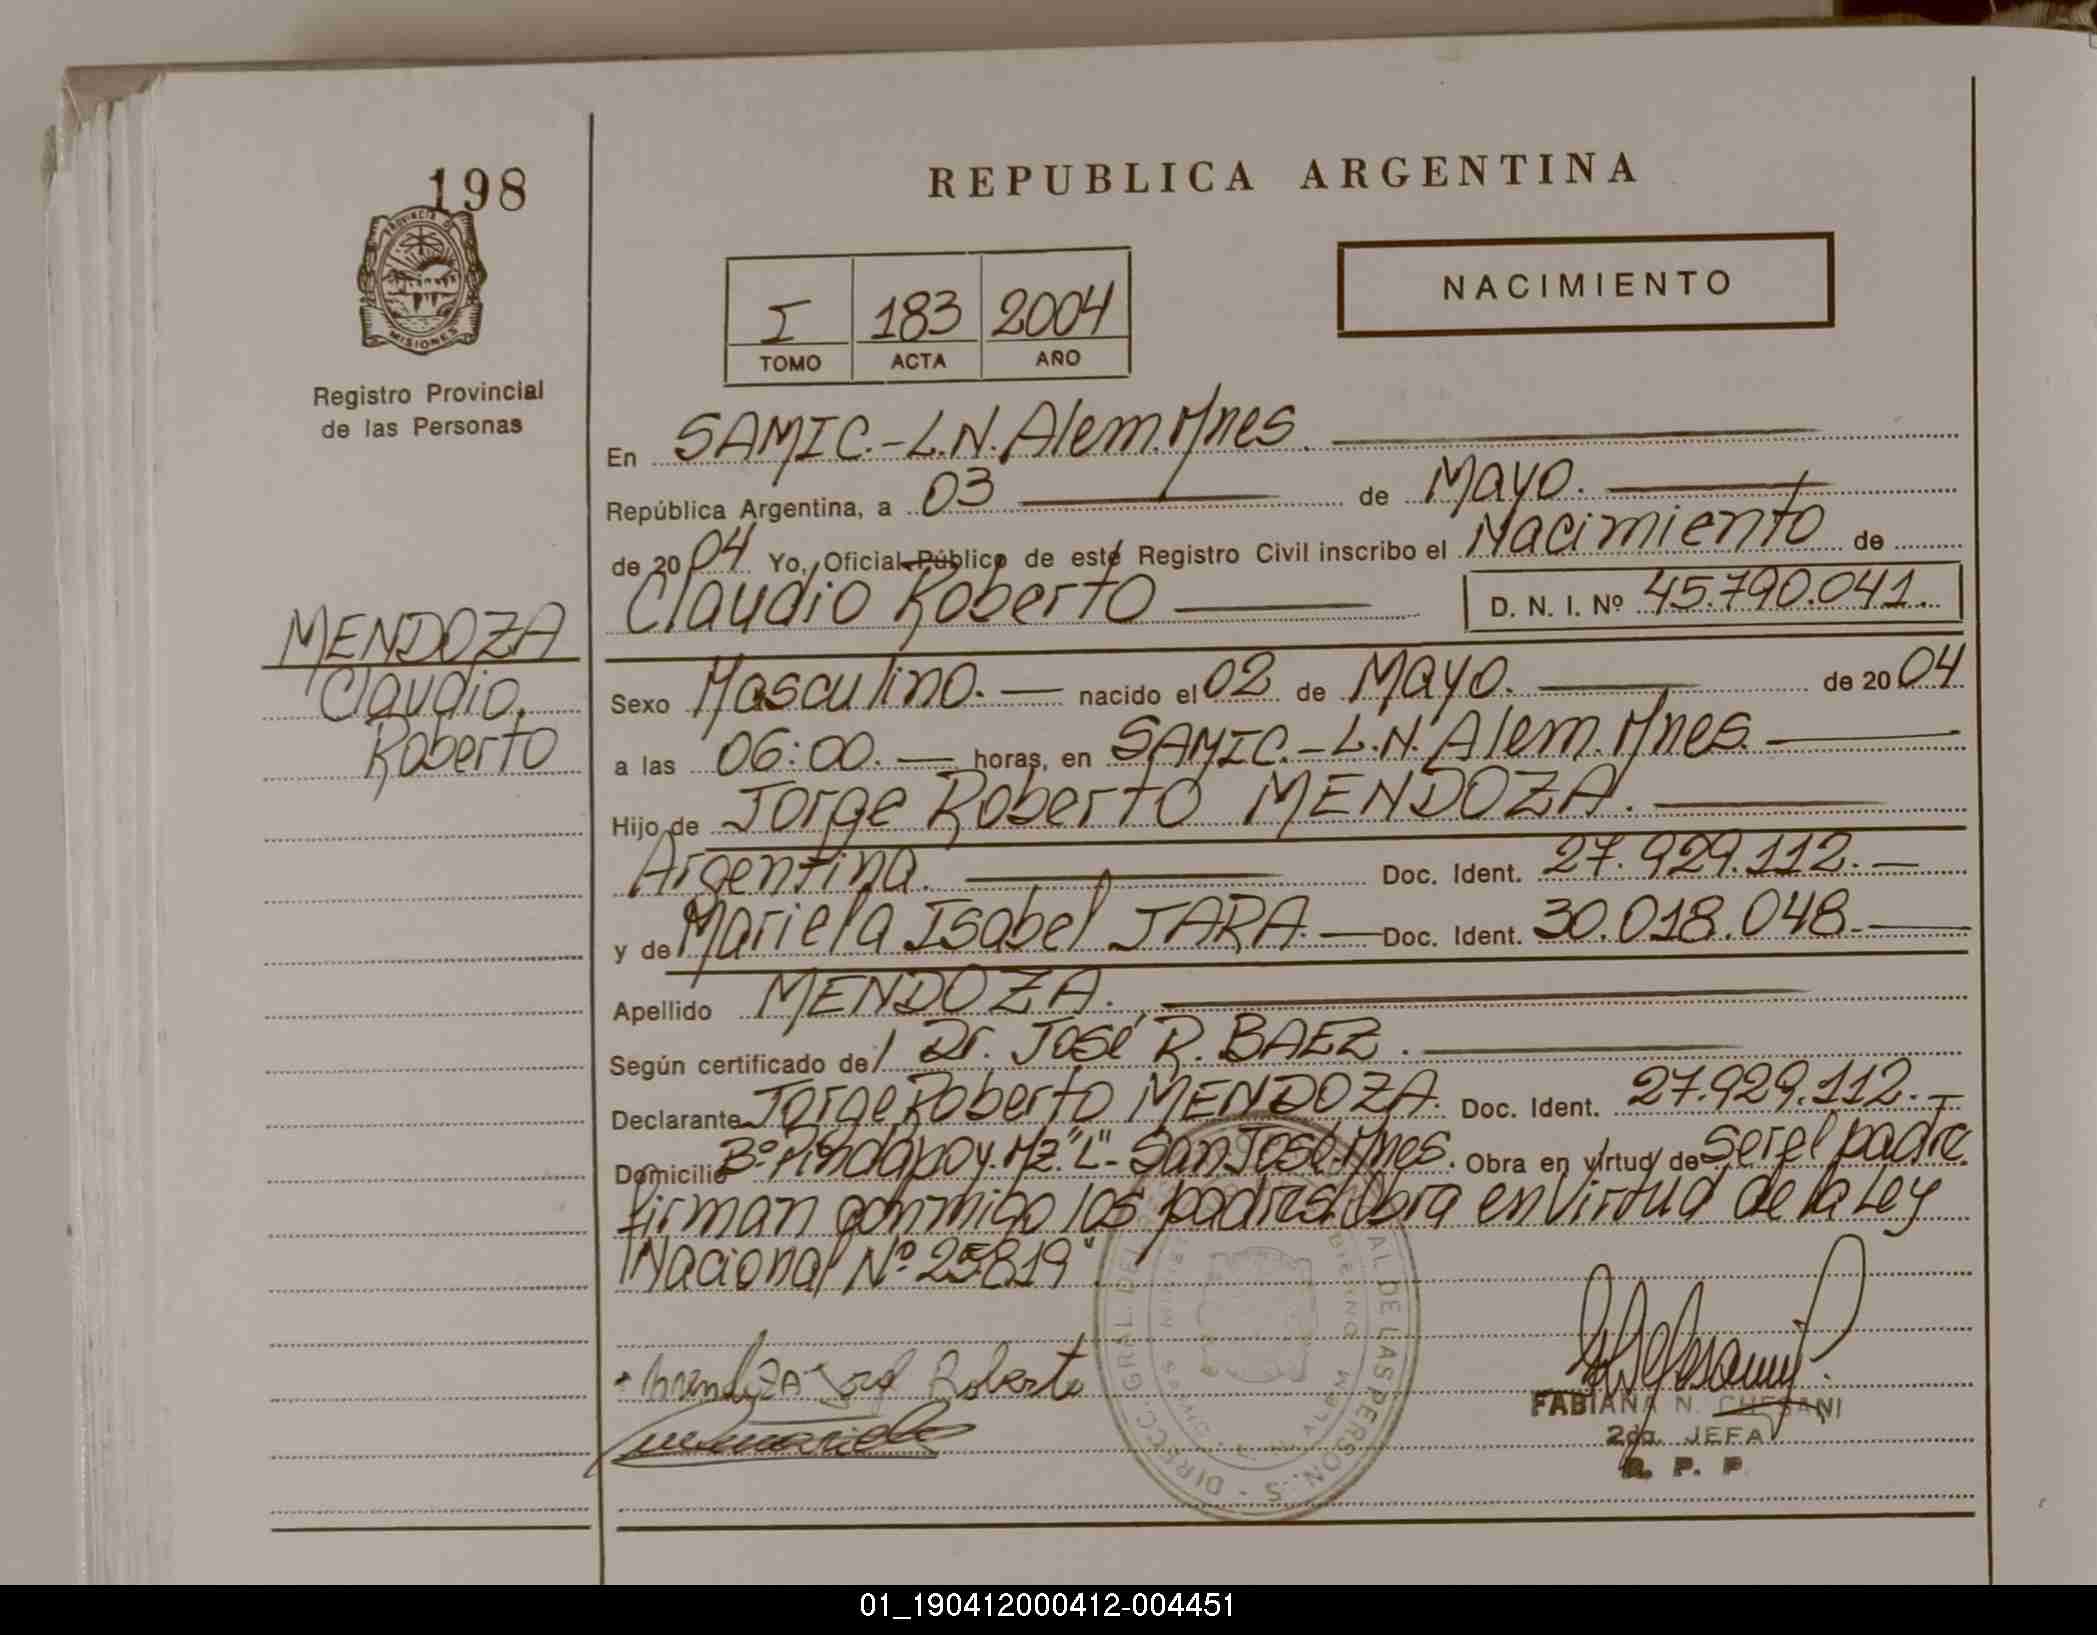 198
PROVINCIA DE
MISIONES
Registro Provincial
de las Personas
MENDOZA
Claudio,
Roberto
REPUBLICA ARGENTINA
NACIMIENTO
I 183 2004
TOMO ACTA AÑO
En SAMIC.-L.N.Alem.Mnes.
República Argentina, a 03 de Mayo.
de 2004 Yo, Oficial Público de este Registro Civil inscribo el Nacimiento de
Claudio Roberto D. N. I. Nº 45.790.041.
Sexo Masculino. nacido el 02 de Mayo. de 2004
a las 06:00. horas, en SAMIC.-L.N.Alem.Mnes.
Hijo de Jorge Roberto MENDOZA.
Argentina. Doc. Ident. 27.929.112.
y de Mariela Isabel JARA. Doc. Ident. 30.018.048.
Apellido MENDOZA.
Según certificado de/ Dr. José R. BAEZ.
Declarante Jorge Roberto MENDOZA. Doc. Ident. 27.929.112.
Domicilio Bº Pindapoy. Mz. "L".- San José. Mnes. Obra en virtud de ser el padre
firman conmigo los padres. Obra en virtud de la Ley
Nacional Nº 25819".
Roberto
FABIANA N. CHESANI
2da. JEFA
R. P. P.
01_190412000412-004451